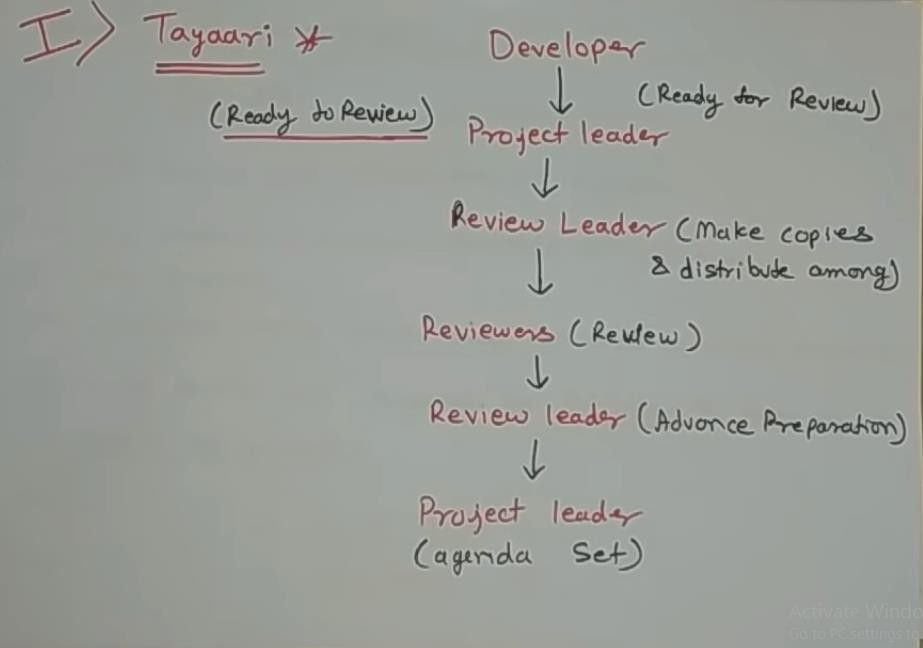 I> Tayaari *
(Ready to Review)
Developer
↓ (Ready for Review)
Project leader
↓
Review Leader (Make copies
& distribute among)
↓
Reviewers (Review)
↓
Review leader (Advance Preparation)
↓
Project leader
(agenda Set)
Activate Windo
Go to PC settings to